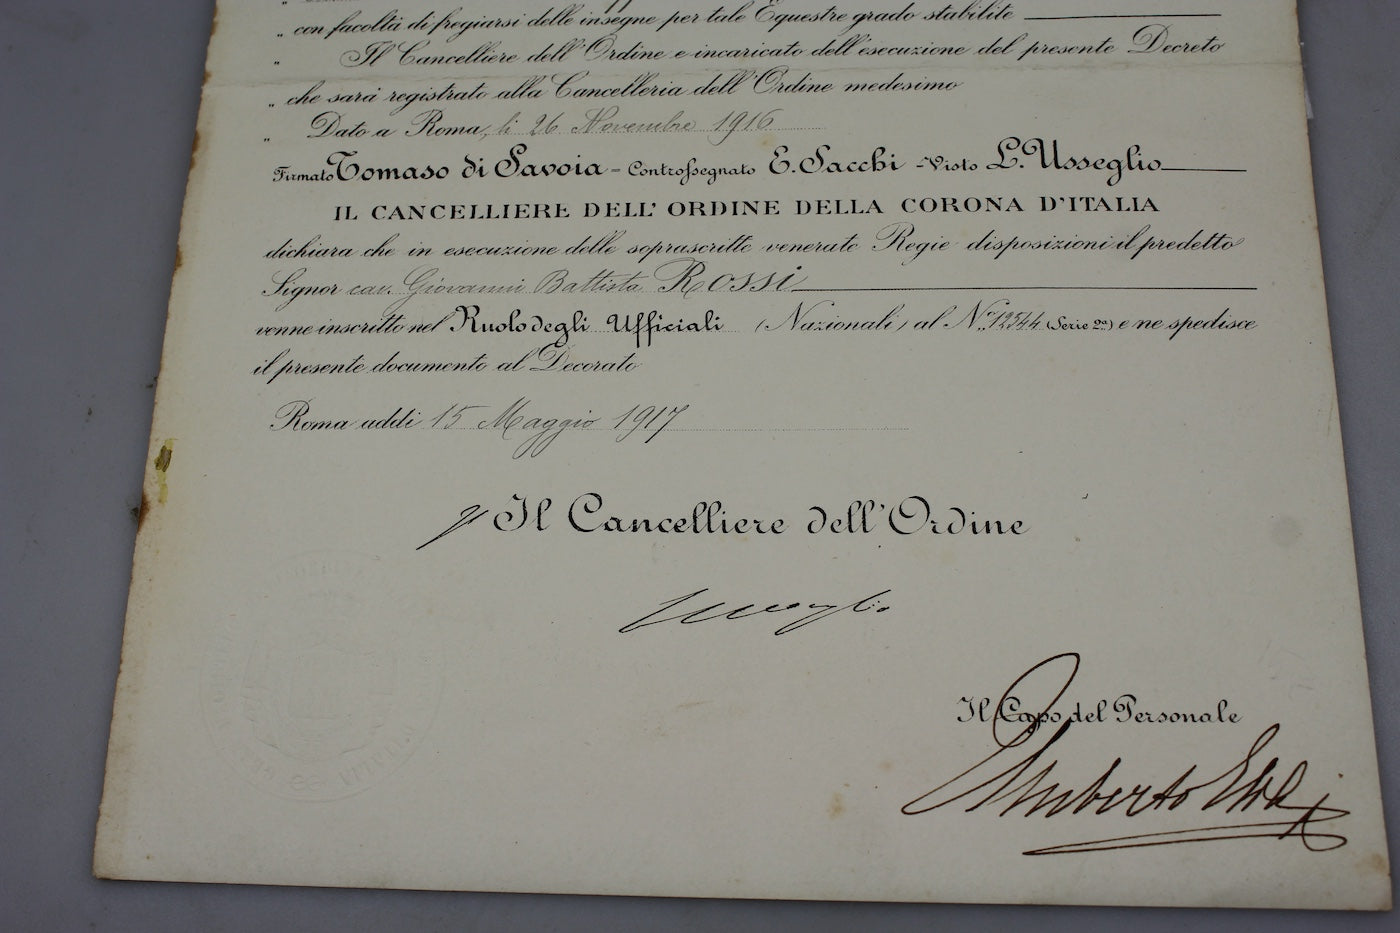 „ con facoltà di fregiarsi delle insegne per tale Equestre grado stabilite
„ Il Cancelliere dell'Ordine e incaricato dell'esecuzione del presente Decreto
„ che sarà registrato alla Cancelleria dell'Ordine medesimo
„ Dato a Roma, li 26 Novembre 1916
Firmato Tomaso di Savoia - Controssegnato E. Sacchi - Visto L. Usseglio
IL CANCELLIERE DELL' ORDINE DELLA CORONA D'ITALIA
dichiara che in esecuzione delle soprascritte venerate Regie disposizioni il predetto
Signor cav. Giovanni Battista Rossi
venne inscritto nel Ruolo degli Ufficiali (Nazionali) al N.° 12544 (Serie 2ª) e ne spedisce
il presente documento al Decorato
Roma addì 15 Maggio 1917
Il Cancelliere dell'Ordine
Usseglio
Il Capo del Personale
Umberto